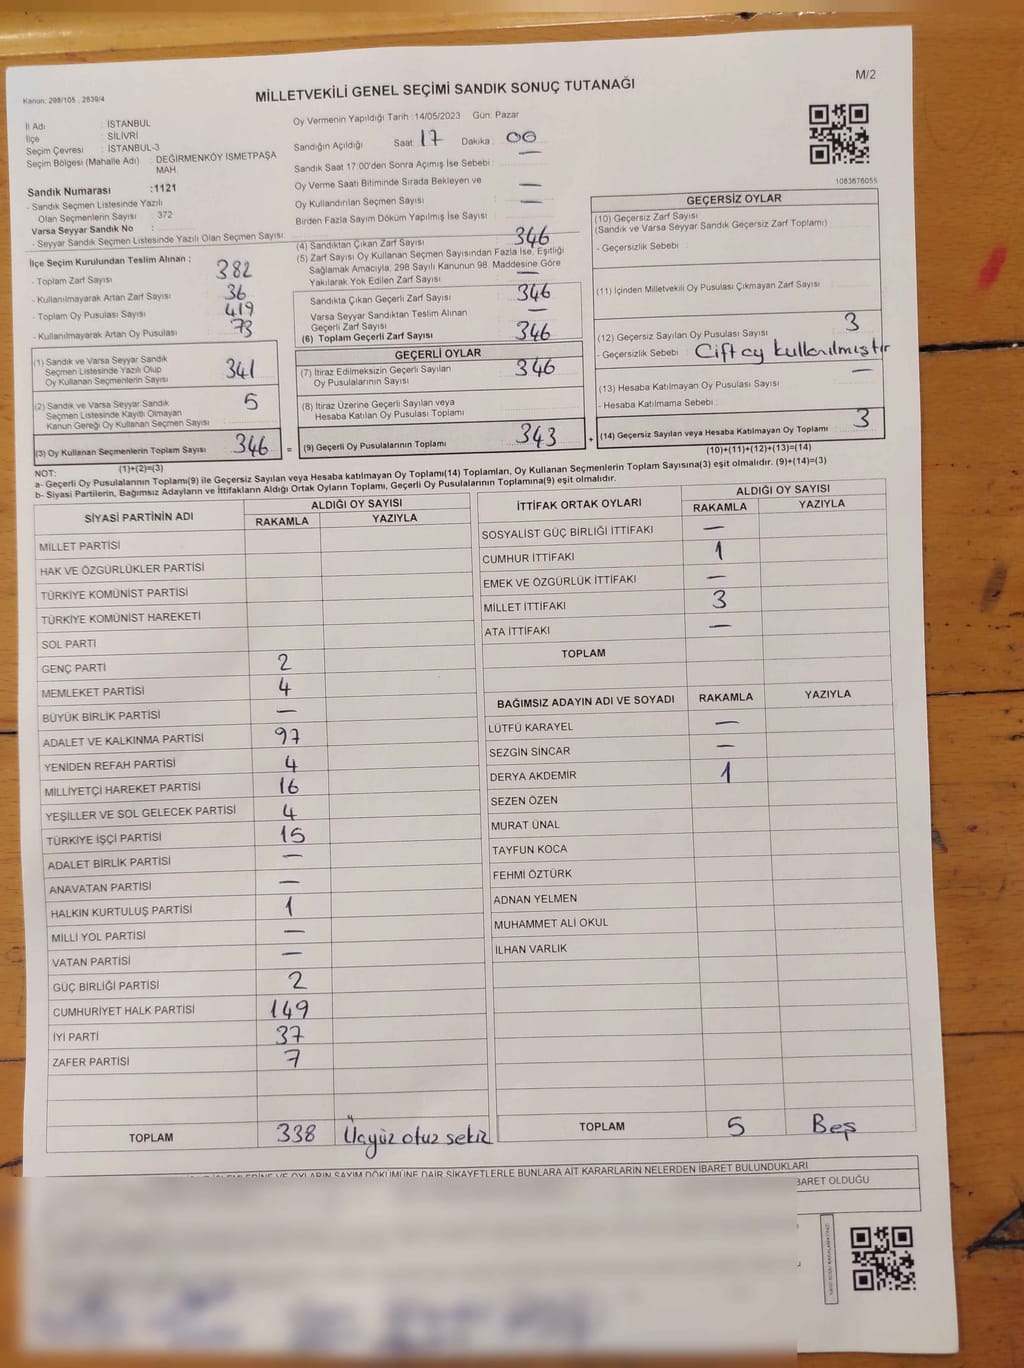 M/2
Kanun: 298/105 , 2839/4
MİLLETVEKİLİ GENEL SEÇİMİ SANDIK SONUÇ TUTANAĞI
İl Adı : İSTANBUL
İlçe : SİLİVRİ
Seçim Çevresi : İSTANBUL-3
Seçim Bölgesi (Mahalle Adı) : DEĞİRMENKÖY İSMETPAŞA
MAH.
Sandık Numarası :1121
- Sandık Seçmen Listesinde Yazılı
Olan Seçmenlerin Sayısı : 372
Varsa Seyyar Sandık No :
- Seyyar Sandık Seçmen Listesinde Yazılı Olan Seçmen Sayısı:
Oy Vermenin Yapıldığı Tarih :14/05/2023 Gün: Pazar
Sandığın Açıldığı Saat: 17 Dakika: 00
Sandık Saat 17:00'den Sonra Açımış İse Sebebi : —
Oy Verme Saati Bitiminde Sırada Bekleyen ve
Oy Kullandırılan Seçmen Sayısı : —
Birden Fazla Sayım Döküm Yapılmış İse Sayısı : —
1083876055
İlçe Seçim Kurulundan Teslim Alınan ;
- Toplam Zarf Sayısı : 382
- Kullanılmayarak Artan Zarf Sayısı : 36
- Toplam Oy Pusulası Sayısı : 419
- Kullanılmayarak Artan Oy Pusulası : 73
(1) Sandık ve Varsa Seyyar Sandık
Seçmen Listesinde Yazılı Olup
Oy Kullanan Seçmenlerin Sayısı : 341
(2) Sandık ve Varsa Seyyar Sandık
Seçmen Listesinde Kayıtlı Olmayan
Kanun Gereği Oy Kullanan Seçmen Sayısı : 5
(3) Oy Kullanan Seçmenlerin Toplam Sayısı 346 =
(1)+(2)=(3)
(4) Sandıktan Çıkan Zarf Sayısı : 346
(5) Zarf Sayısı Oy Kullanan Seçmen Sayısından Fazla İse, Eşitliği
Sağlamak Amacıyla, 298 Sayılı Kanunun 98. Maddesine Göre
Yakılarak Yok Edilen Zarf Sayısı : —
Sandıkta Çıkan Geçerli Zarf Sayısı : 346
Varsa Seyyar Sandıktan Teslim Alınan
Geçerli Zarf Sayısı : —
(6) Toplam Geçerli Zarf Sayısı : 346
GEÇERLİ OYLAR
(7) İtiraz Edilmeksizin Geçerli Sayılan
Oy Pusulalarının Sayısı : 346
(8) İtiraz Üzerine Geçerli Sayılan veya
Hesaba Katılan Oy Pusulası Toplamı :
(9) Geçerli Oy Pusulalarının Toplamı : 343 +
GEÇERSİZ OYLAR
(10) Geçersiz Zarf Sayısı :
(Sandık ve Varsa Seyyar Sandık Geçersiz Zarf Toplamı)
- Geçersizlik Sebebi :
(11) İçinden Milletvekili Oy Pusulası Çıkmayan Zarf Sayısı :
(12) Geçersiz Sayılan Oy Pusulası Sayısı : 3
- Geçersizlik Sebebi : Çift oy kullanılmıştır
(13) Hesaba Katılmayan Oy Pusulası Sayısı : —
- Hesaba Katılmama Sebebi :
(14) Geçersiz Sayılan veya Hesaba Katılmayan Oy Toplamı : 3
(10)+(11)+(12)+(13)=(14)
NOT:
a- Geçerli Oy Pusulalarının Toplamı(9) ile Geçersiz Sayılan veya Hesaba katılmayan Oy Toplamı(14) Toplamları, Oy Kullanan Seçmenlerin Toplam Sayısına(3) eşit olmalıdır. (9)+(14)=(3)
b- Siyasi Partilerin, Bağımsız Adayların ve İttifakların Aldığı Ortak Oyların Toplamı, Geçerli Oy Pusulalarının Toplamına(9) eşit olmalıdır.
SİYASİ PARTİNİN ADI ALDIĞI OY SAYISI
RAKAMLA YAZIYLA
MİLLET PARTİSİ
HAK VE ÖZGÜRLÜKLER PARTİSİ
TÜRKİYE KOMÜNİST PARTİSİ
TÜRKİYE KOMÜNİST HAREKETİ
SOL PARTİ
GENÇ PARTİ 2
MEMLEKET PARTİSİ 4
BÜYÜK BİRLİK PARTİSİ —
ADALET VE KALKINMA PARTİSİ 97
YENİDEN REFAH PARTİSİ 4
MİLLİYETÇİ HAREKET PARTİSİ 16
YEŞİLLER VE SOL GELECEK PARTİSİ 4
TÜRKİYE İŞÇİ PARTİSİ 15
ADALET BİRLİK PARTİSİ —
ANAVATAN PARTİSİ —
HALKIN KURTULUŞ PARTİSİ 1
MİLLİ YOL PARTİSİ —
VATAN PARTİSİ —
GÜÇ BİRLİĞİ PARTİSİ 2
CUMHURİYET HALK PARTİSİ 149
İYİ PARTİ 37
ZAFER PARTİSİ 7
TOPLAM 338 Üçyüz otuz sekiz
İTTİFAK ORTAK OYLARI ALDIĞI OY SAYISI
RAKAMLA YAZIYLA
SOSYALİST GÜÇ BİRLİĞİ İTTİFAKI —
CUMHUR İTTİFAKI 1
EMEK VE ÖZGÜRLÜK İTTİFAKI —
MİLLET İTTİFAKI 3
ATA İTTİFAKI —
TOPLAM
BAĞIMSIZ ADAYIN ADI VE SOYADI RAKAMLA YAZIYLA
LÜTFÜ KARAYEL —
SEZGİN SİNCAR —
DERYA AKDEMİR 1
SEZEN ÖZEN
MURAT ÜNAL
TAYFUN KOCA
FEHMİ ÖZTÜRK
ADNAN YELMEN
MUHAMMET ALİ OKUL
İLHAN VARLIK
TOPLAM 5 Beş
OYLARIN SAYIM DÖKÜMÜNE DAİR ŞİKAYETLERLE BUNLARA AİT KARARLARIN NELERDEN İBARET BULUNDUKLARI
İBARET OLDUĞU